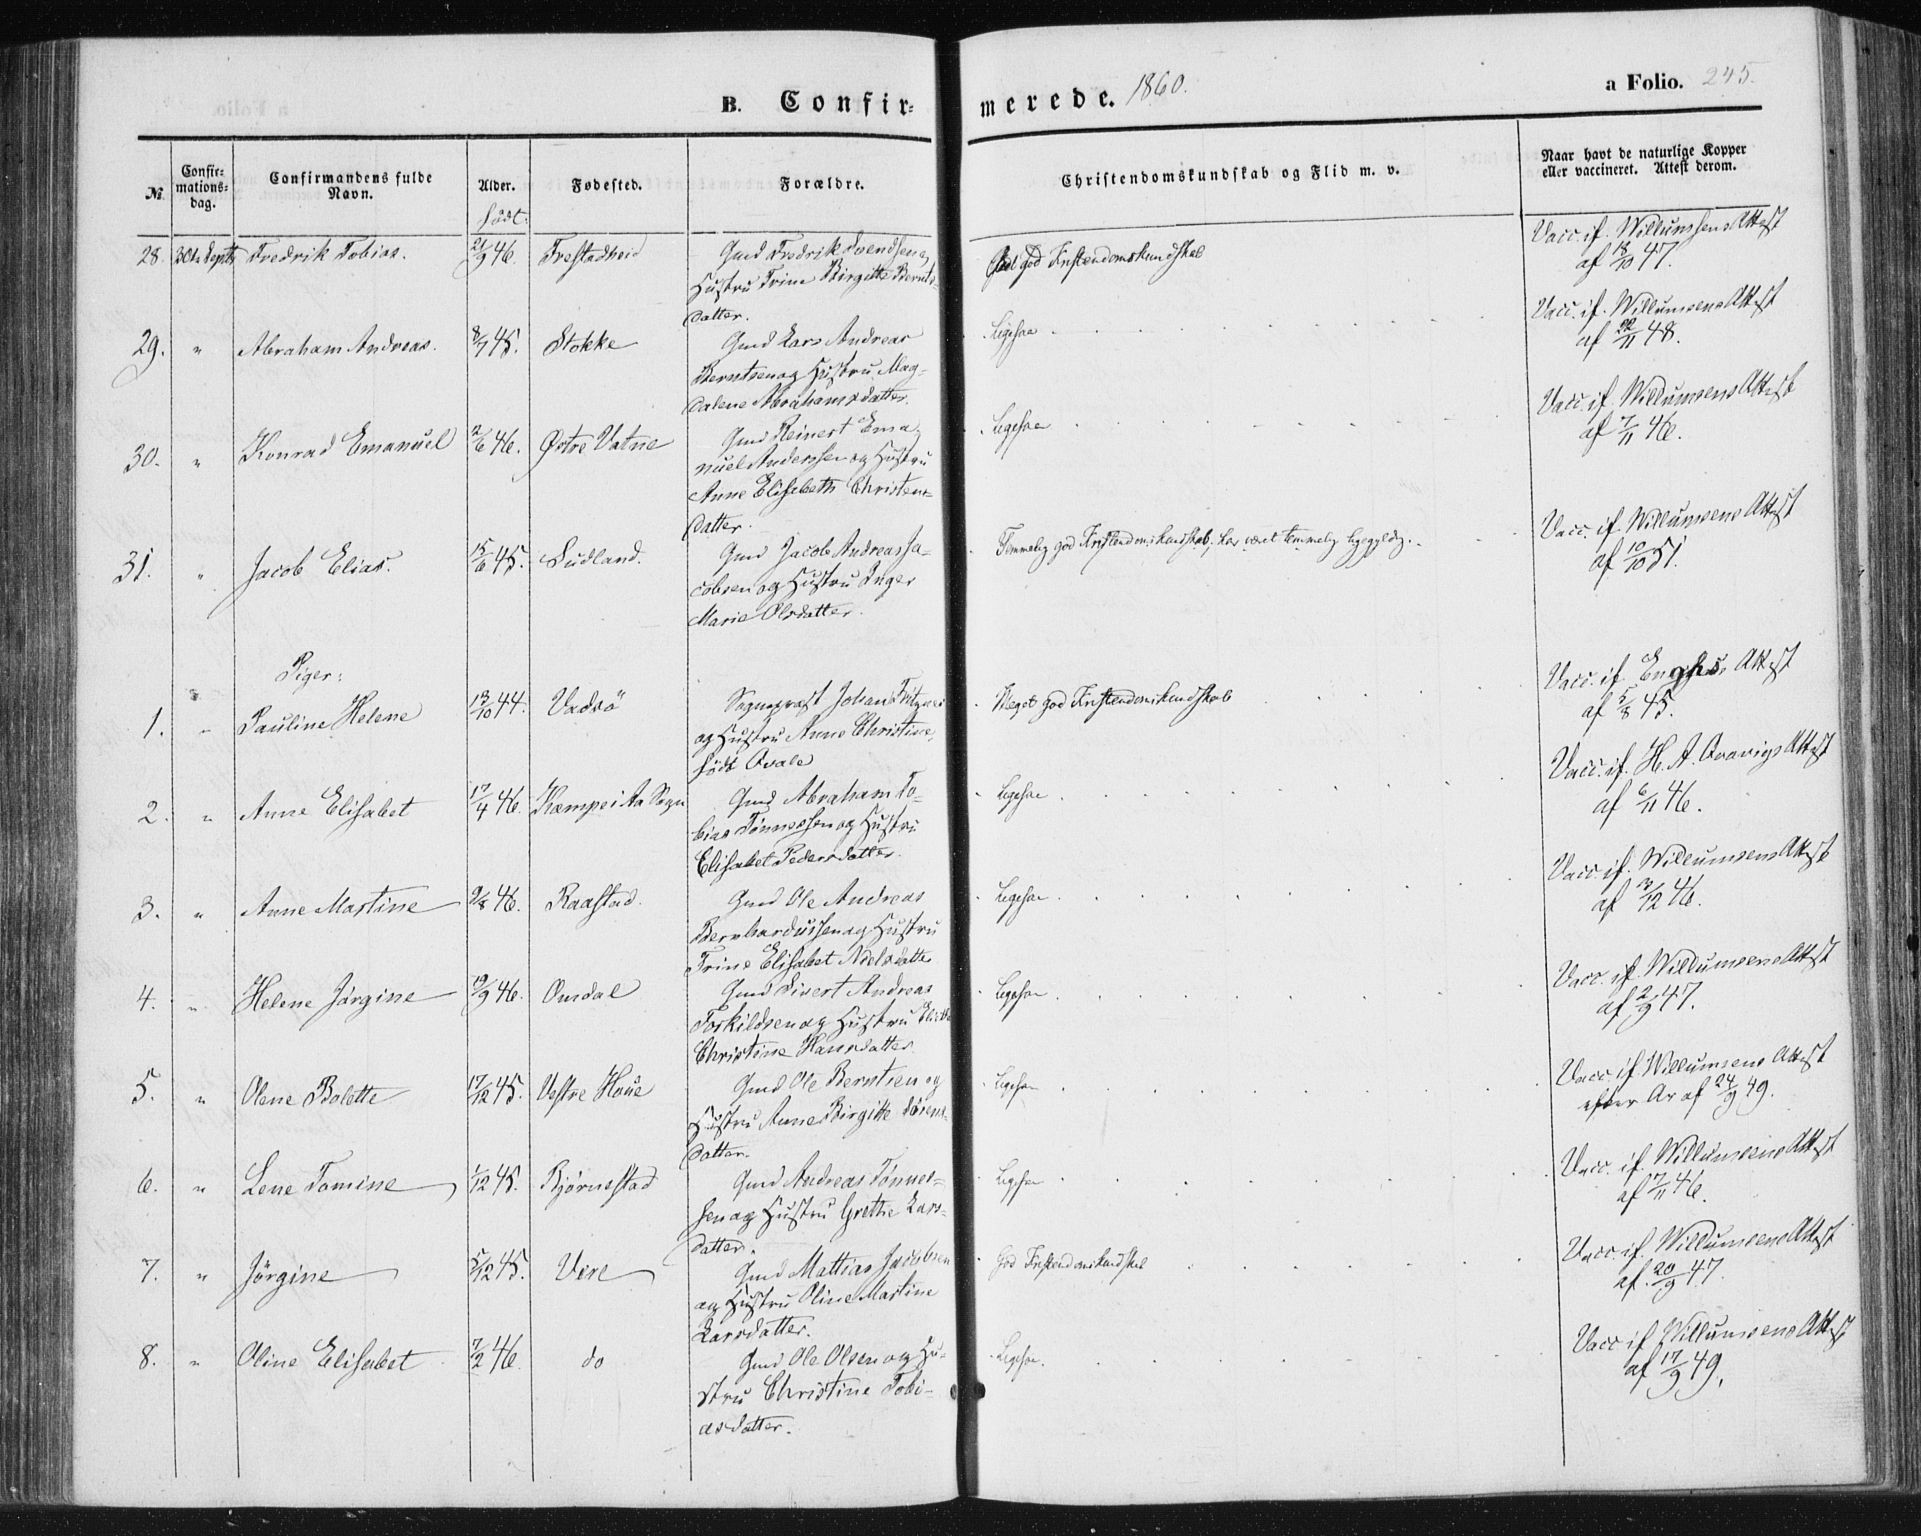 B. Confir- merede. 1860. a Folio. 245.
№ Confir-mations-dag. Confirmandens fulde Navn. Alder. Født. Fødested. Forældre. Christendomskundskab og Flid m. v. Naar havt de naturlige Kopper eller vaccineret. Attest derom.
28. 30te Septb Fredrik Tobias. 21/9 46. Frestadheid Gmd Fredrik Svendsen og
Hustru Trine Birgitte Bernts-
datter.
god Kristendomskundskab
Vacc. if. Willumsens Attest
af 18/10 47.
29. " Abraham Andreas. 8/7 45. Stokke Gmd Lars Andreas
Berntsen og Hustru Mag-
dalene Abrahamsdatter.
Ligesaa
Vacc. if. Willumsens Attest
af 22/11 48.
30. " Konrad Emanuel 2/6 46. Østre Vatne Gmd Reinert Ema-
nuel Anderssen og Hustru
Anne Elisabeth Christens-
datter.
Ligesaa
Vacc. if. Willumsens Attest
af 7/11 46.
31. " Jacob Elias. 15/6 45. Sudland. Gmd Jacob Andreas Ja-
cobsen og Hustru Inger
Marie Olsdatter.
Temmelig god Kristendomskundskab, har været temmelig ligegyldig.
Vacc. if. Willumsens Attest
af 10/10 51.
Piger:
1. " Pauline Helene 13/10 44. Vadsö Sogneprest Johan Fritzner
og Hustru Anne Christine,
født Qvale
Meget god Kristendomskundskab
Vacc. if. Enghs Attest
af 5/8 45.
2. " Anne Elisabet 17/4 46. Kæmpe i Aa Sogn Gmd Abraham To-
bias Tønnessen og Hustru
Elisabet Pedersdatter.
Ligesaa
Vacc. if. H. A. Attest
af 6/11 46.
3. " Anne Martine 9/8 46. Raastad. Gmd Ole Andreas
Bernhardussen og Hustru
Trine Elisabet Nielsdatter
Ligesaa
Vacc. if. Willumsens Attest
af 3/12 46.
4. " Helene Jörgine 19/9 46. Omdal Gmd Sivert Andreas
Torkildsen og Hustru
Christine Hansdatter
Ligesaa
Vacc. if. Willumsens Attest
af 2/9 47.
5. " Olene Bolette 17/12 45. Vestre Houe Gmd Ole Berntsen og
Hustru Anne Birgitte Sörens-
datter.
Ligesaa
Vacc. if. Willumsens Attest
efter Ar af 24/9 49.
6. " Lene Tomine 1/12 45. Bjørnestad Gmd Andreas Tønnes-
sen og Hustru Grethe Lars-
datter.
Ligesaa
Vacc. if. Willumsens Attest
af 7/11 46.
7. " Jörgine 5/12 45. Vere Gmd Mattias Jacobsen
og Hustru Oline Martine
Larsdatter.
God Kristendomskundskab
Vacc. if. Willumsens Attest
af. 20/9 47.
8. " Oline Elisabet 7/2 46. do Gmd Ole Olsen og Hu-
stru Christine Tobi-
asdatter.
Ligesaa.
Vacc. if. Willumsens Attest
af 17/9 49.